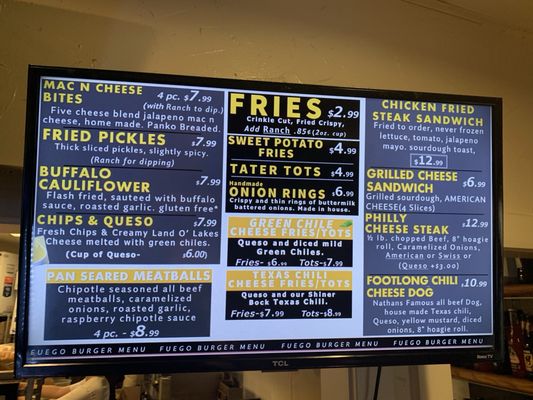 MAC N CHEESE
BITES
4 pc. - $7.99
(with Ranch to dip.)
Five cheese blend jalapeno mac n
cheese, home made. Panko Breaded.
FRIED PICKLES $7.99
Thick sliced pickles, slightly spicy.
(Ranch for dipping)
BUFFALO
CAULIFLOWER $7.99
Flash fried, sauteed with buffalo
sauce, roasted garlic. gluten free*
CHIPS & QUESO $7.99
Fresh Chips & Creamy Land O' Lakes
Cheese melted with green chiles.
(Cup of Queso- $6.00)
PAN SEARED MEATBALLS
Chipotle seasoned all beef
meatballs, caramelized
onions, roasted garlic,
raspberry chipotle sauce
4 pc. - $8.99
FRIES $2.99
Crinkle Cut, Fried Crispy,
Add Ranch .85¢(2oz. cup)
SWEET POTATO
FRIES $4.99
TATER TOTS $4.99
Handmade
ONION RINGS $6.99
Crispy and thin rings of buttermilk
battered onions. Made in house.
GREEN CHILE
CHEESE FRIES/TOTS
Queso and diced mild
Green Chiles.
Fries- $6.99 Tots- $7.99
TEXAS CHILI
CHEESE FRIES/TOTS
Queso and our Shiner
Bock Texas Chili.
Fries-$7.99 Tots-$8.99
CHICKEN FRIED
STEAK SANDWICH
Fried to order, never frozen
lettuce, tomato, jalapeno
mayo. sourdough toast,
$12.99
GRILLED CHEESE
SANDWICH $6.99
Grilled sourdough, AMERICAN
CHEESE(4 Slices)
PHILLY
CHEESE STEAK $12.99
½ lb. chopped Beef, 8" hoagie
roll, Caramelized Onions,
American or Swiss or
(Queso +$3.00)
FOOTLONG CHILI
CHEESE DOG $10.99
Nathans Famous all beef Dog,
house made Texas chili,
Queso, yellow mustard, diced
onions, 8" hoagie roll.
FUEGO BURGER MENU FUEGO BURGER MENU FUEGO BURGER MENU FUEGO BURGER MENU
TCL
Roku TV